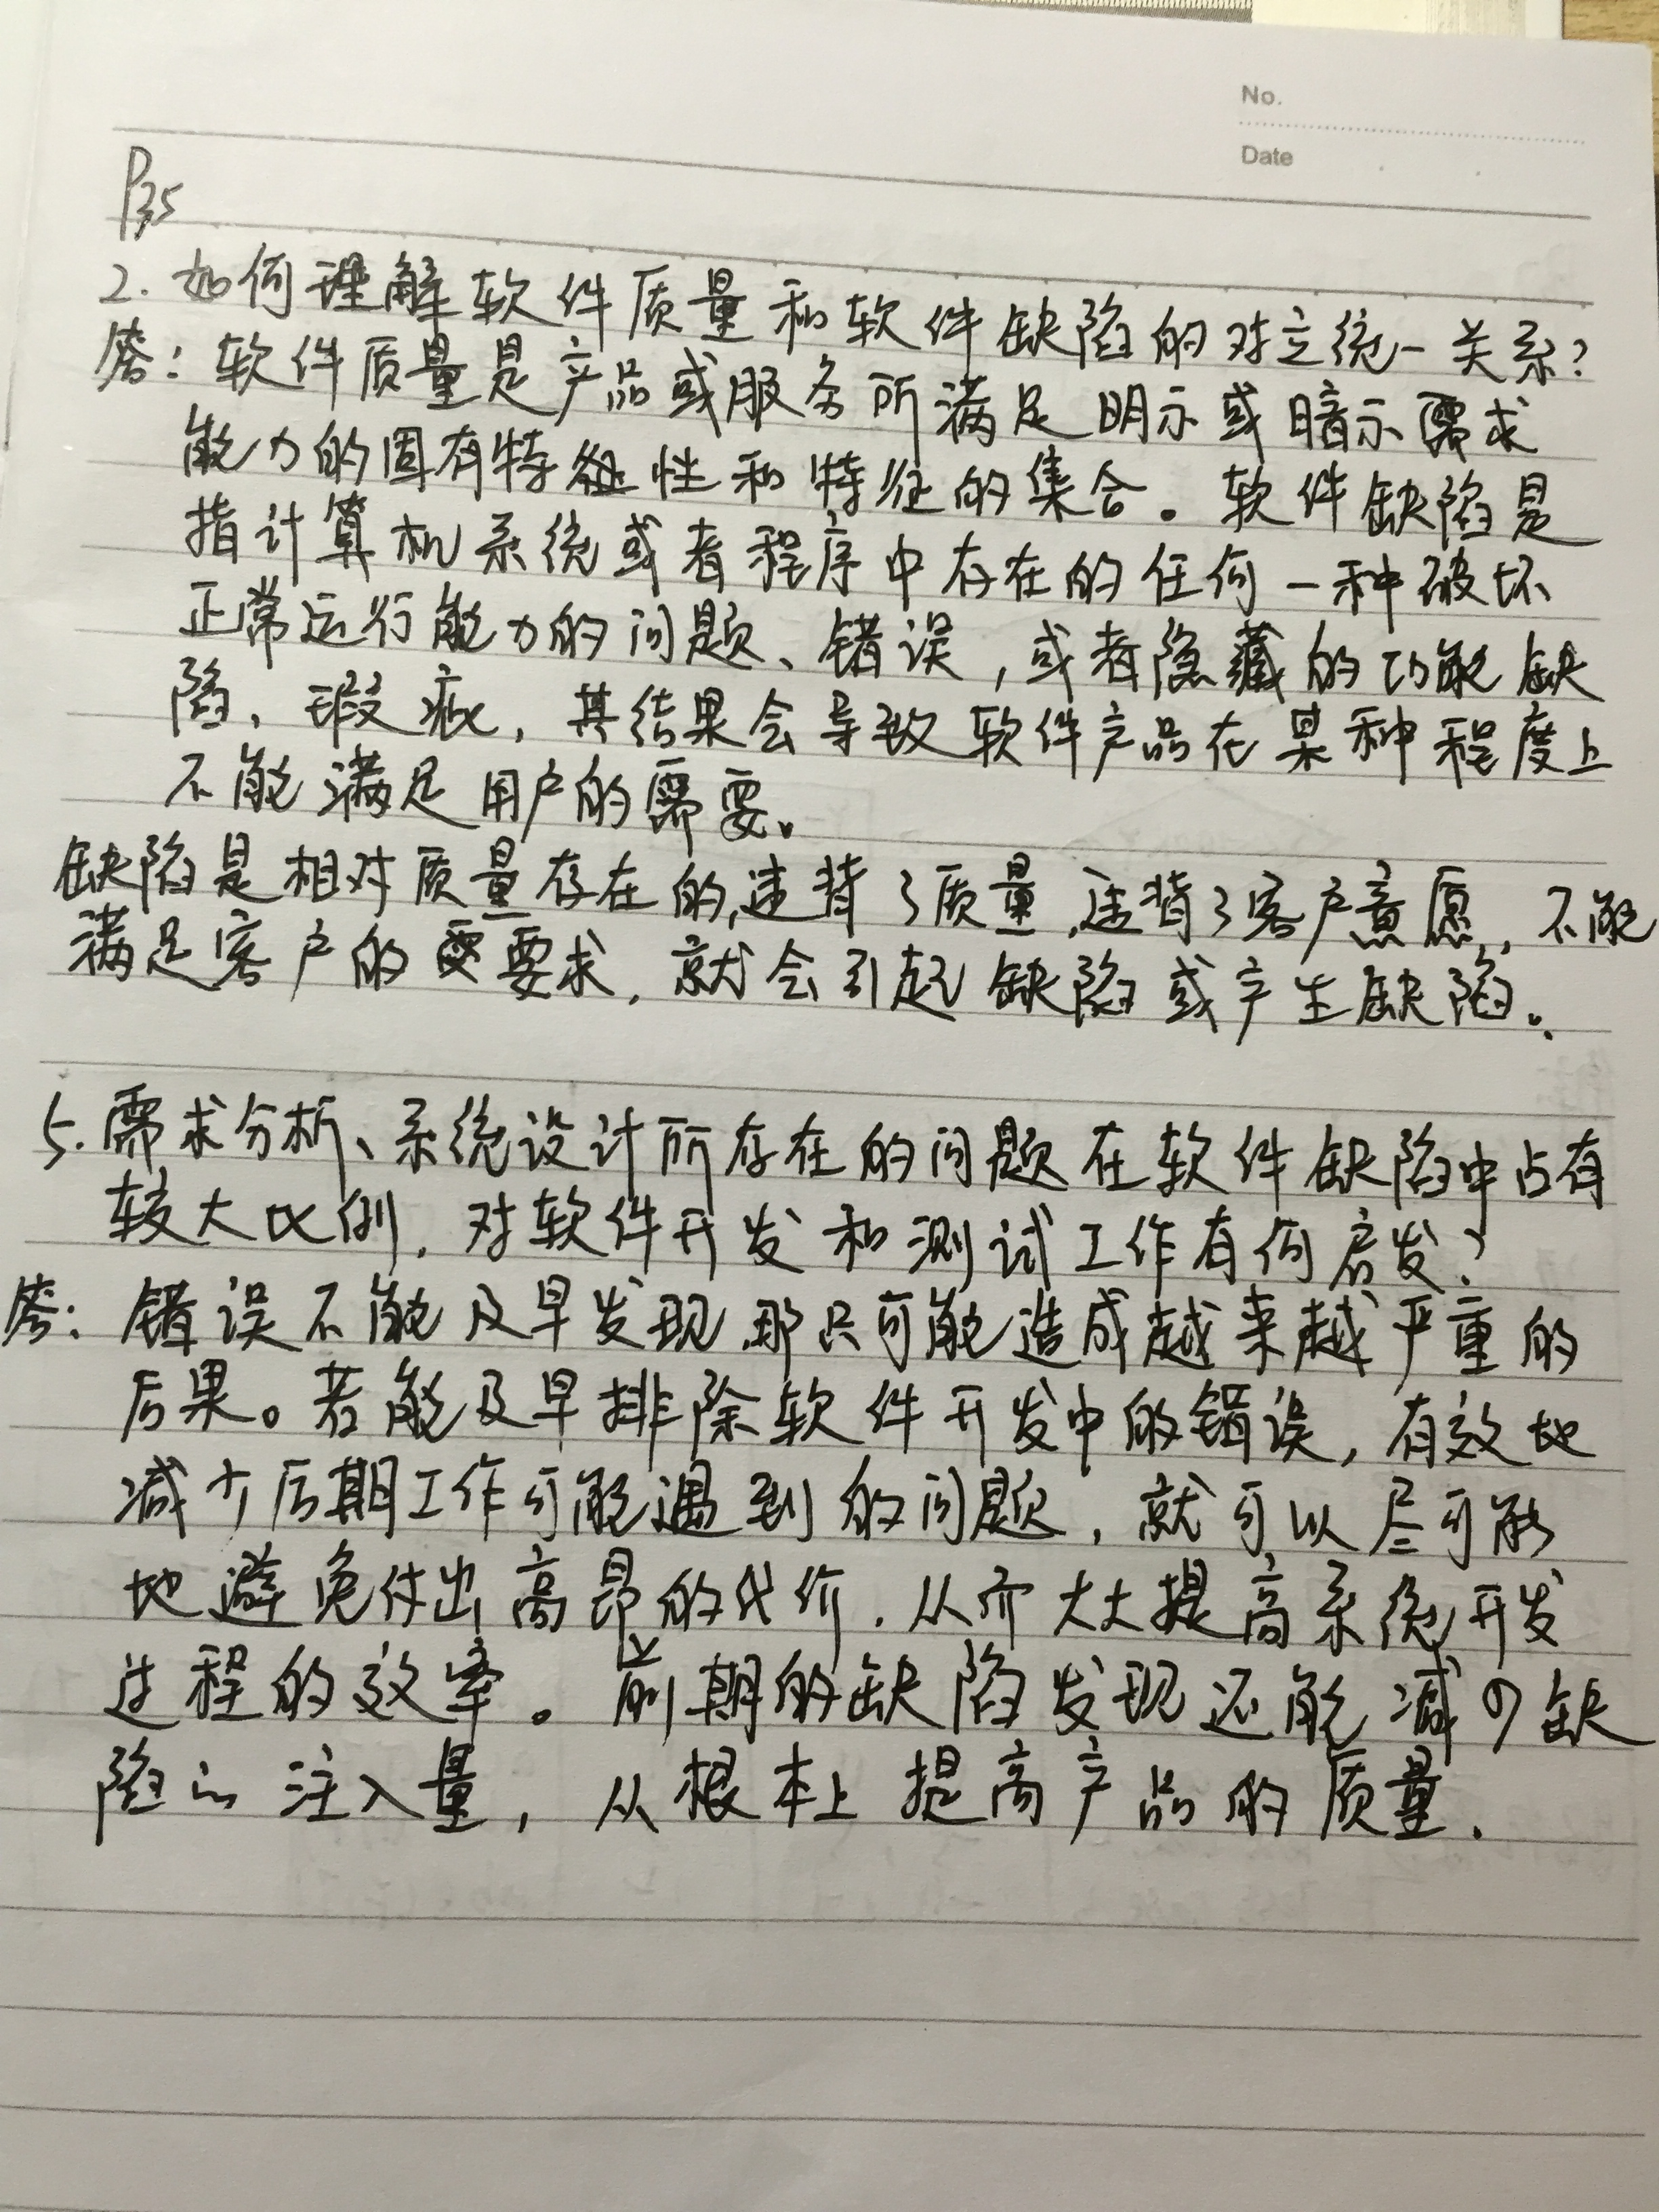 No.
Date
P35
2. 如何理解软件质量和软件缺陷的对立统一关系?
答: 软件质量是产品或服务所满足明示或暗示需求
能力的固有特征性和特征的集合。软件缺陷是
指计算机系统或者程序中存在的任何一种破坏
正常运行能力的问题、错误,或者隐藏的功能缺
陷、瑕疵,其结果会导致软件产品在某种程度上
不能满足用户的需要。
缺陷是相对质量存在的,违背了质量,违背了客户意愿,不能
满足客户的要求,就会引起缺陷或产生缺陷。
5. 需求分析、系统设计所存在的问题在软件缺陷中占有
较大比例,对软件开发和测试工作有何启发?
答: 错误不能及早发现,那只可能造成越来越严重的
后果。若能及早排除软件开发中的错误,有效地
减少后期工作可能遇到的问题,就可以尽可能
地避免付出高昂的代价,从而大大提高系统开发
过程的效率。前期的缺陷发现还能减少缺
陷的注入量,从根本上提高产品的质量.